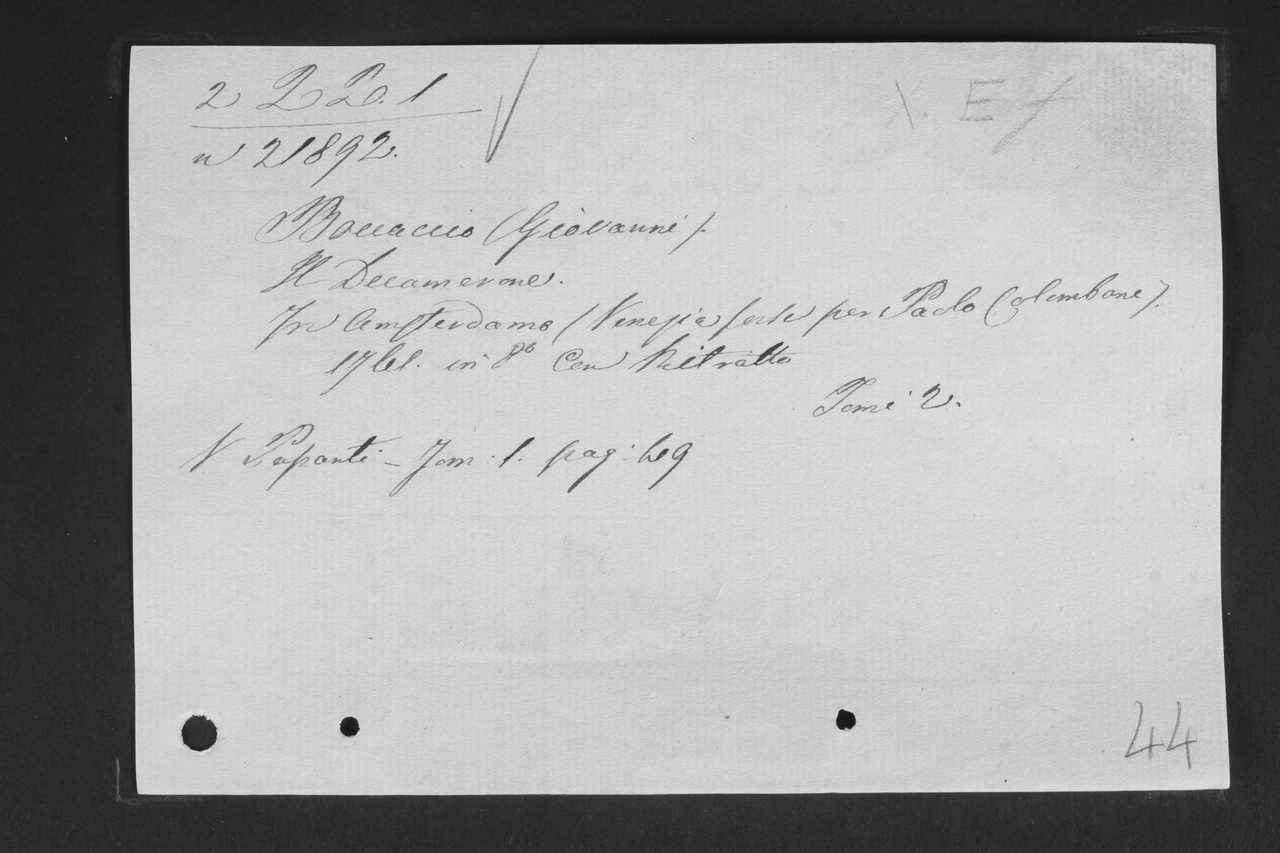 2 2 2. 1
X. E f
n 21892.
Boccaccio (Giovanni).
Il Decamerone.
In Amsterdamo (Venezia forse per Paolo Colombani).
in 8º Con Ritratto
Tomi 2.
V Papanti - Tom: 1. pag:
44